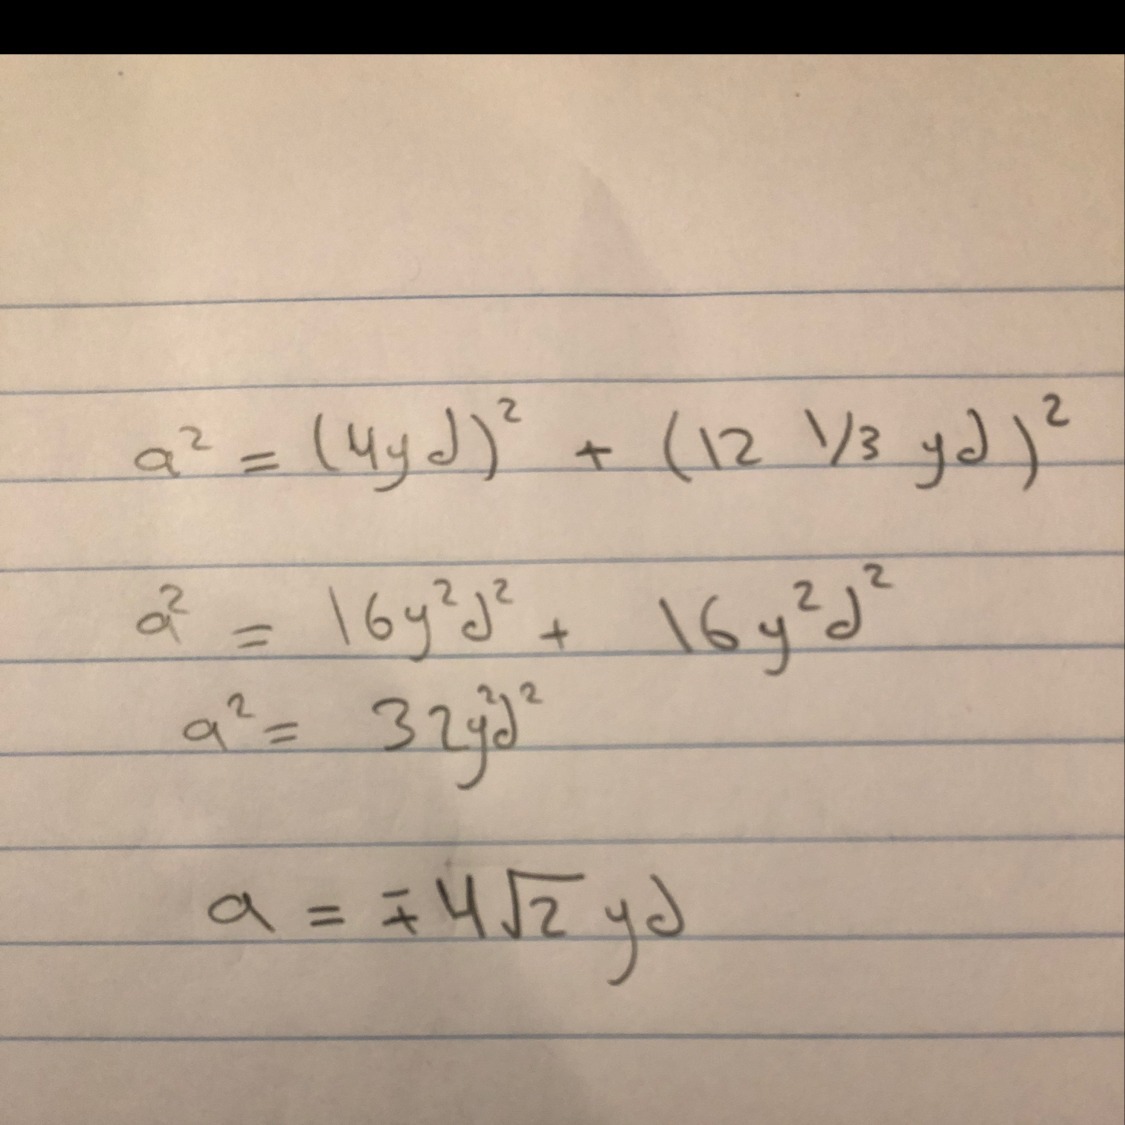 a² = (4yd)² + (12 1/3 yd)²
a² = 16y²d² + 16y²d²
a² = 32y²d²
a = ∓4√2 yd